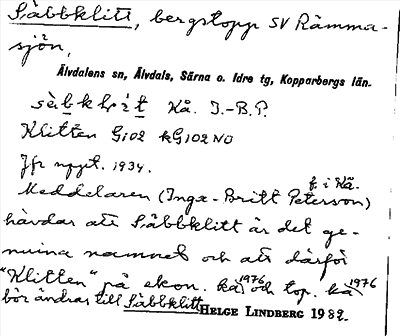 Säbbklitt, bergstopp SV Rämma-
sjön,
Älvdalens sn, Älvdals, Särna o. Idre tg, Kopparbergs län.
Kå. I.-B.P.
Klitten G102 kG102NO
Jfr uppt. 1934.
f. i Kå.
Meddelaren (Inga-Britt Peterson)
hävdar att Säbbklitt är det ge-
nuina namnet och att därför
"Klitten" på ekon. ka 1976 och top. ka 1976
bör ändras till Säbbklitt
HELGE LINDBERG 1982.